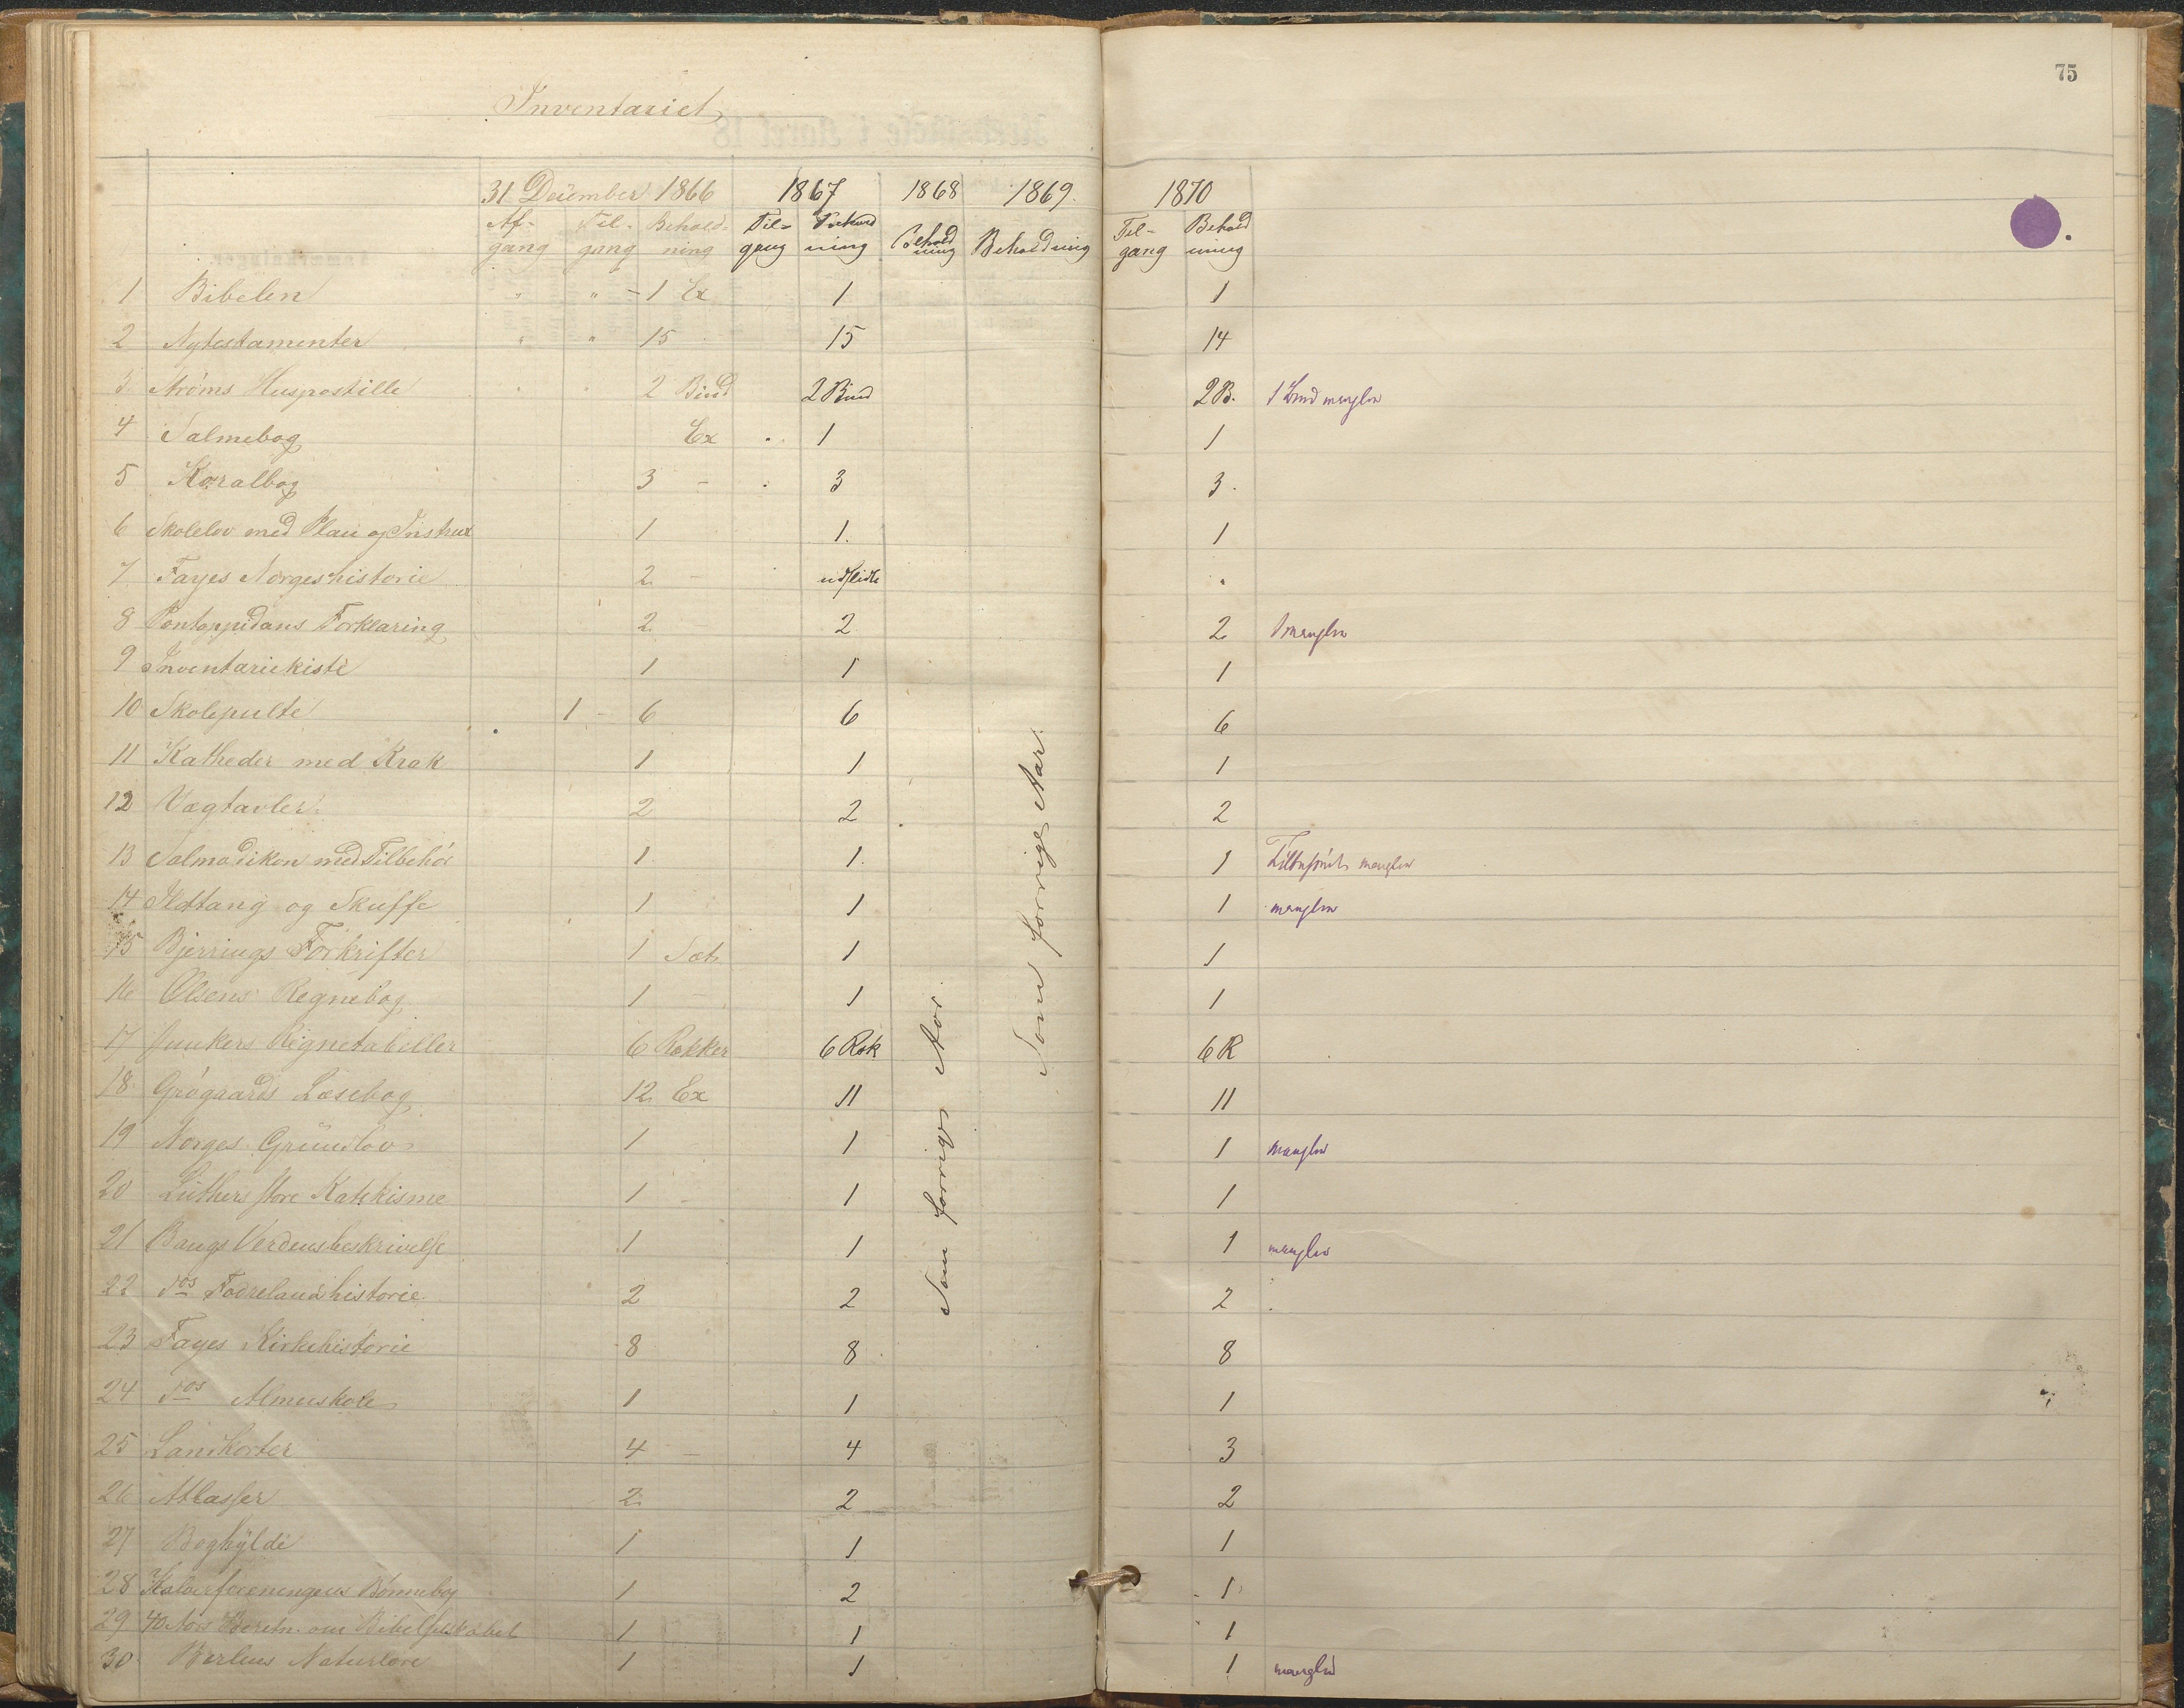 75
Inventariet
31 December 1866 1867 1868 1869. 1870
Af-gang Til-gang Behold-ning Til-gang Behold ning Behold ning Beholdning Til-gang Behold ning
1 Bibelen " " - 1 Ex 1 1
2 Nytestamenter " " 15 15 14
3 Strøms Huspostille " " 2 Bind 2 Bind 2 B. 1 Bind mangler
4 Salmebog Ex 1 1
5 Koralbog 3 - 3 3.
6 Skolelov med Plan og Instrux 1 1. 1
7 Fayes Norgeshistorie 2 - udslidte "
8 Pontoppidans Forklaring 2 2 2 1 mangler
9 Inventariekiste 1 1 1
10 Skolepulte 1 - 6 6 6
11 Katheder med Krak 1 1 1
12 Vægtavler 2 2 2
13 Salmodikon med Tilbehör 1 1. 1 Tilbehöret mangler
14 Ildtang og Skuffe 1 1 1 mangler
15 Bjerrings Forkrifter 1 Sæt 1 1
16 Olsens Regnebog 1 - 1 1
17 Junkers Regnetabeller 6 Pakker 6 Pak 6 P
18 Grögaards Læsebog 12 Ex 11 11
19 Norges Grundlov 1 - 1 1 mangler
20 Luthers store Katekisme 1 - 1 1
21 Bangs Verdensbeskrivelse 1 1 1 mangler
22 dos Fædrelandshistorie 2 2 2
23 Fayes Kirkehistorie 8 8 8
24 dos Almueskole 1 1 1
25 Landkorter 4 - 4 3
26 Atlasser 2 2 2
27 Boghylde 1 1 1
28 Kalverforeningens Bønnebog 1 2 1
29 40 Aars Beretn. om Bibelselskabet 1 1 1
30 Berlins Naturlære 1 1 1 mangler
Som forrige Aar.
Som forrige Aar.